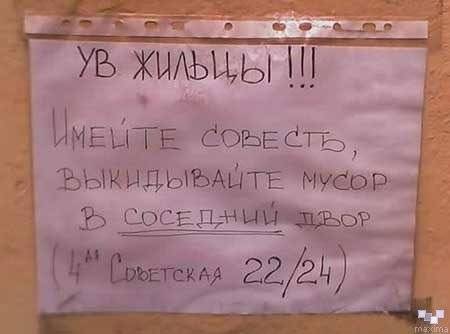 УВ ЖИЛЬЦЫ!!!
ИМЕЙТЕ СОВЕСТЬ,
ВЫКИДЫВАЙТЕ МУСОР
В СОСЕДНИЙ ДВОР
(4ая СОВЕТСКАЯ 22/24)
maxima